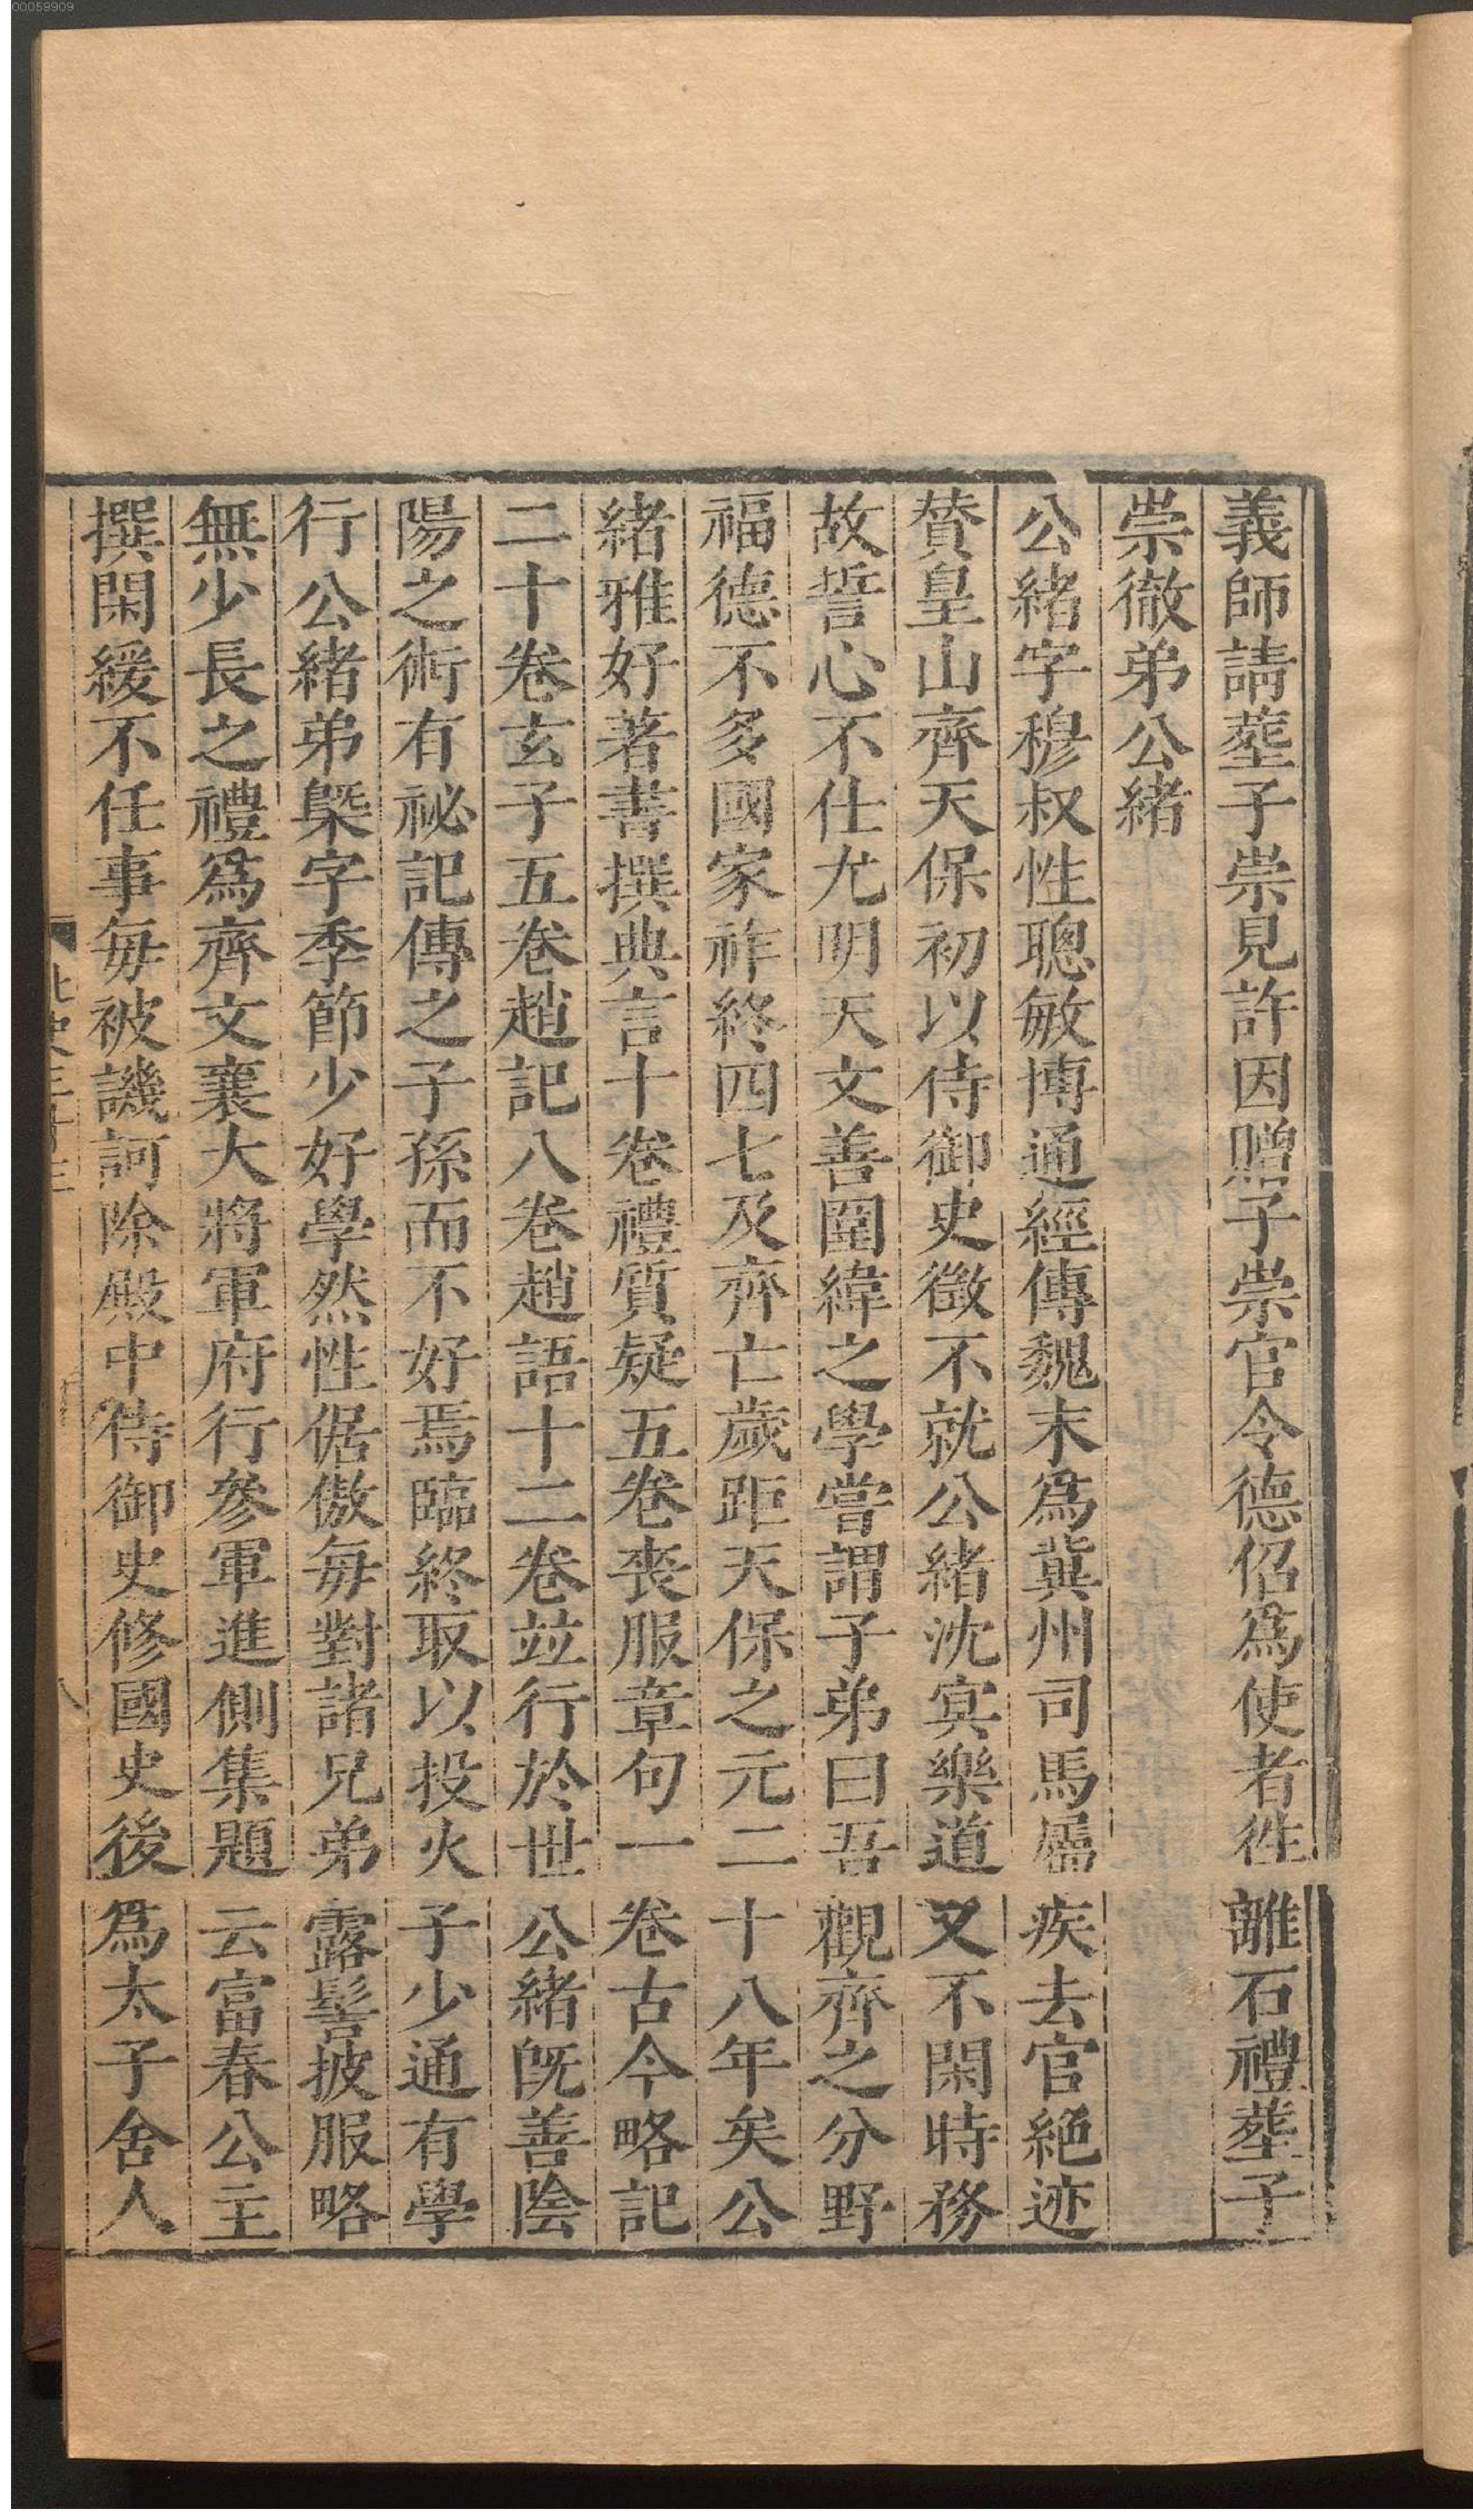 00059909
義師請塟子崇見許因贈子崇官令德侶爲使者徃離石禮塟子
崇徹弟公緒
公緒字穆叔性聰敏博通經傳魏末爲冀州司馬屬疾去官絶迹
賛皇山齊天保初以侍御史徵不就公緒沈㝠樂道又不閑時務
故誓心不仕尤明天文善圖緯之學嘗謂子弟曰吾觀齊之分野
福德不多國家祚終四七及齊亡歲距天保之元二十八年矣公
緒雅好著書撰典言十卷禮質疑五卷喪服章句一卷古今略記
二十卷玄子五卷趙記八卷趙語十二卷竝行於世公緒旣善陰
陽之術有祕記傳之子孫而不好焉臨終取以投火子少通有學
行公緒弟槩字季節少好學然性倨傲毎對諸兄弟露髻披服略
無少長之禮爲齊文襄大將軍府行參軍進側集題云富春公主
撰閑緩不任事毎被譏訶除殿中侍御史修國史後爲太子舍人
北史三十三